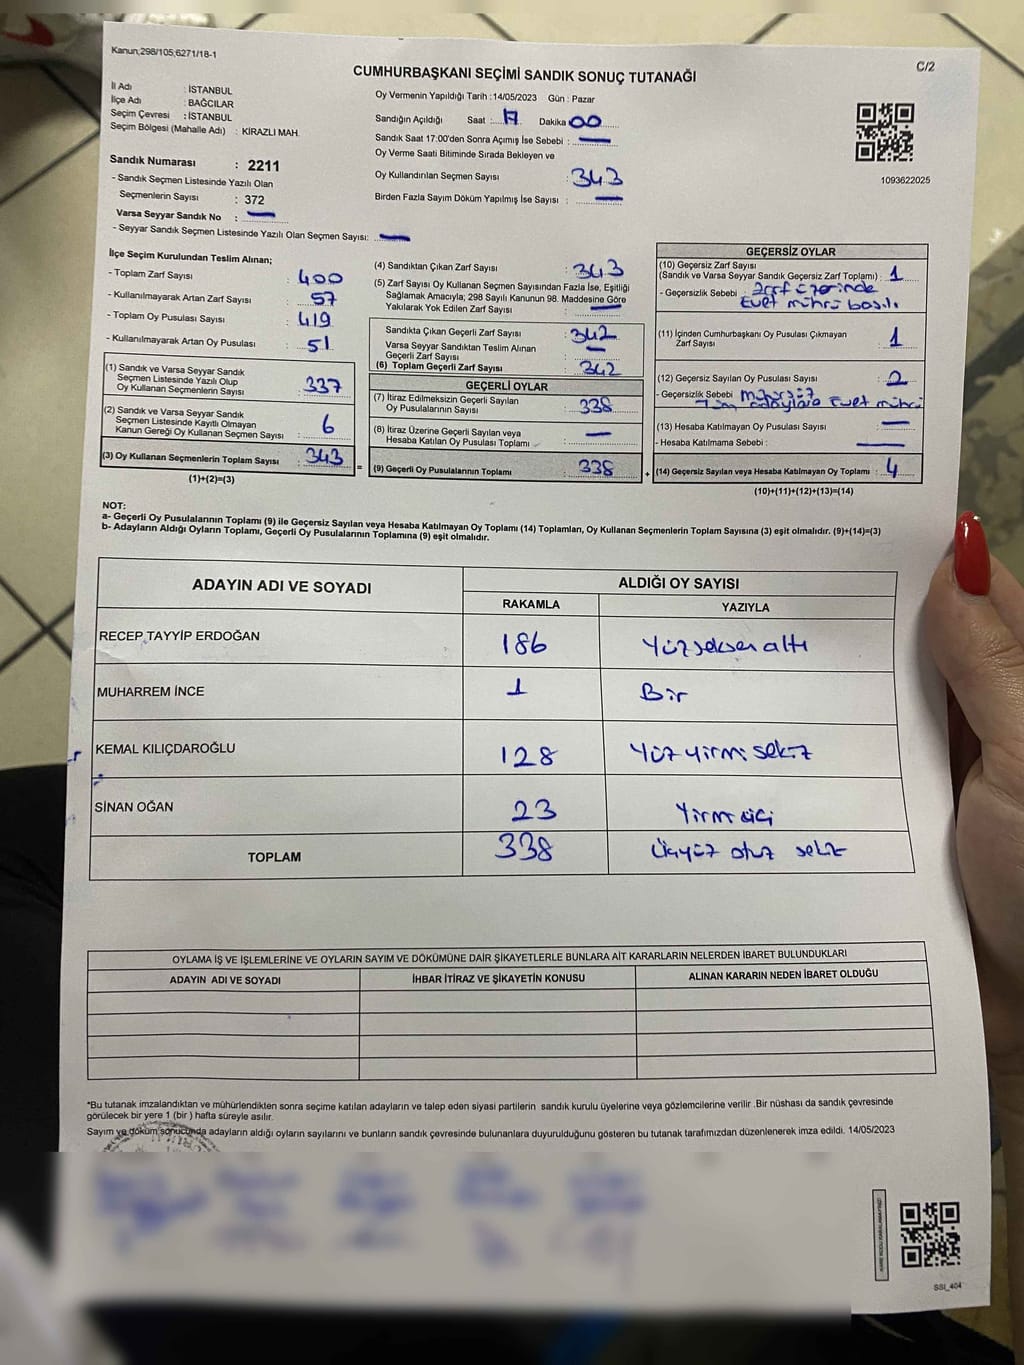 Kanun;298/105,6271/18-1
C/2
CUMHURBAŞKANI SEÇİMİ SANDIK SONUÇ TUTANAĞI
İl Adı : İSTANBUL
İlçe Adı : BAĞCILAR
Seçim Çevresi : İSTANBUL
Seçim Bölgesi (Mahalle Adı) : KİRAZLI MAH.
Sandık Numarası : 2211
- Sandık Seçmen Listesinde Yazılı Olan
Seçmenlerin Sayısı : 372
Varsa Seyyar Sandık No : —
- Seyyar Sandık Seçmen Listesinde Yazılı Olan Seçmen Sayısı: —
Oy Vermenin Yapıldığı Tarih :14/05/2023 Gün : Pazar
Sandığın Açıldığı Saat : 17 Dakika 00
Sandık Saat 17:00'den Sonra Açımış İse Sebebi : —
Oy Verme Saati Bitiminde Sırada Bekleyen ve
Oy Kullandırılan Seçmen Sayısı : 343
Birden Fazla Sayım Döküm Yapılmış İse Sayısı : —
1093622025
İlçe Seçim Kurulundan Teslim Alınan;
- Toplam Zarf Sayısı : 400
- Kullanılmayarak Artan Zarf Sayısı : 57
- Toplam Oy Pusulası Sayısı : 419
- Kullanılmayarak Artan Oy Pusulası : 51
(1) Sandık ve Varsa Seyyar Sandık
Seçmen Listesinde Yazılı Olup
Oy Kullanan Seçmenlerin Sayısı : 337
(2) Sandık ve Varsa Seyyar Sandık
Seçmen Listesinde Kayıtlı Olmayan
Kanun Gereği Oy Kullanan Seçmen Sayısı : 6
(3) Oy Kullanan Seçmenlerin Toplam Sayısı : 343
(1)+(2)=(3)
=
(4) Sandıktan Çıkan Zarf Sayısı : 343
(5) Zarf Sayısı Oy Kullanan Seçmen Sayısından Fazla İse, Eşitliği
Sağlamak Amacıyla; 298 Sayılı Kanunun 98. Maddesine Göre
Yakılarak Yok Edilen Zarf Sayısı : —
Sandıkta Çıkan Geçerli Zarf Sayısı : 342
Varsa Seyyar Sandıktan Teslim Alınan
Geçerli Zarf Sayısı : —
(6) Toplam Geçerli Zarf Sayısı : 342
GEÇERLİ OYLAR
(7) İtiraz Edilmeksizin Geçerli Sayılan
Oy Pusulalarının Sayısı : 338
(8) İtiraz Üzerine Geçerli Sayılan veya
Hesaba Katılan Oy Pusulası Toplamı : —
(9) Geçerli Oy Pusulalarının Toplamı : 338
+
GEÇERSİZ OYLAR
(10) Geçersiz Zarf Sayısı
(Sandık ve Varsa Seyyar Sandık Geçersiz Zarf Toplamı) : 1
- Geçersizlik Sebebi : Zarf üzerinde
Evet mührü basılı
(11) İçinden Cumhurbaşkanı Oy Pusulası Çıkmayan
Zarf Sayısı : 1
(12) Geçersiz Sayılan Oy Pusulası Sayısı : 2
- Geçersizlik Sebebi : Mühürsüz
Tüm adaylara Evet mührü
(13) Hesaba Katılmayan Oy Pusulası Sayısı : —
- Hesaba Katılmama Sebebi : —
(14) Geçersiz Sayılan veya Hesaba Katılmayan Oy Toplamı : 4
(10)+(11)+(12)+(13)=(14)
NOT:
a- Geçerli Oy Pusulalarının Toplamı (9) ile Geçersiz Sayılan veya Hesaba Katılmayan Oy Toplamı (14) Toplamları, Oy Kullanan Seçmenlerin Toplam Sayısına (3) eşit olmalıdır. (9)+(14)=(3)
b- Adayların Aldığı Oyların Toplamı, Geçerli Oy Pusulalarının Toplamına (9) eşit olmalıdır.
ADAYIN ADI VE SOYADI ALDIĞI OY SAYISI
RAKAMLA YAZIYLA
RECEP TAYYİP ERDOĞAN 186 Yüzseksen altı
MUHARREM İNCE 1 Bir
KEMAL KILIÇDAROĞLU 128 Yüz yirmi sekiz
SİNAN OĞAN 23
TOPLAM 338 Üçyüz otuz sekiz
OYLAMA İŞ VE İŞLEMLERİNE VE OYLARIN SAYIM VE DÖKÜMÜNE DAİR ŞİKAYETLERLE BUNLARA AİT KARARLARIN NELERDEN İBARET BULUNDUKLARI
ADAYIN ADI VE SOYADI İHBAR İTİRAZ VE ŞİKAYETİN KONUSU ALINAN KARARIN NEDEN İBARET OLDUĞU
*Bu tutanak imzalandıktan ve mühürlendikten sonra seçime katılan adayların ve talep eden siyasi partilerin sandık kurulu üyelerine veya gözlemcilerine verilir .Bir nüshası da sandık çevresinde
görülecek bir yere 1 (bir ) hafta süreyle asılır.
Sayım ve döküm sonucunda adayların aldığı oyların sayılarını ve bunların sandık çevresinde bulunanlara duyurulduğunu gösteren bu tutanak tarafımızdan düzenlenerek imza edildi. 14/05/2023
SSI_404